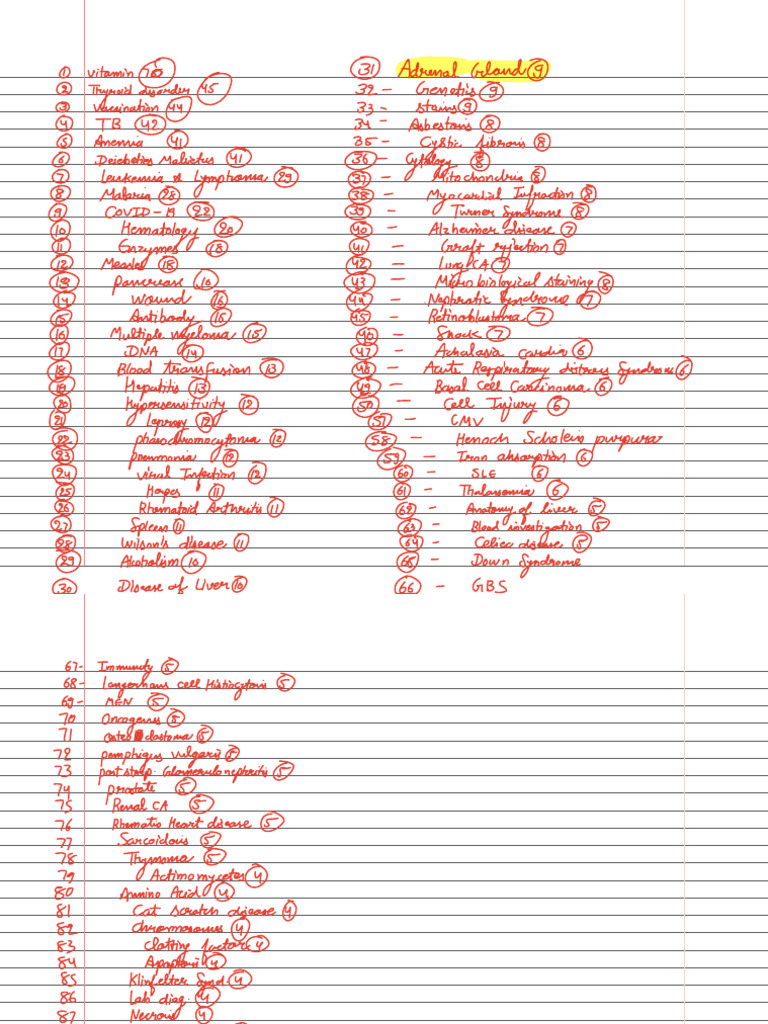 1 vitamin 75
2 Thyroid disorder 45
3 Vaccination 44
4 TB 42
5 Anemia 41
6 Deiabeties Malietus 41
7 Leukemia & Lymphoma 29
8 Malaria 28
9 COVID-19 22
10 Hematology 20
11 Enzymes 18
12 Measles 18
13 pancrease 10
14 Wound 16
15 Antibody 15
16 Multiple myeloma 15
17 DNA 14
18 Blood transfusion 13
19 Hepatitis 13
20 Hypersensitivity 12
21 leprosy 12
22 phaeochromocytomia 12
23 pneumonia 12
24 viral Infection 12
25 Herpes 11
26 Rhematoid Arthritis 11
27 Spleen 11
28 Wilson's disease 11
29 Alcoholism 10
30 Disease of Liver 10
31 Adrenal Gland 9
32 - Genetis 9
33 - stains 9
34 - Asbestosis 8
35 - Cystic fiberosis 8
36 - Cytology 8
37 - Mitochondria 8
38 - Myocardial Infraction 8
39 - Turner Syndrome 8
40 - Alzheimer disease 7
41 - Graft rejection 7
42 - Lung CA 7
43 - Microbiological staining 8
44 - Nephrotic Syndrome 7
45 - Retinoblastoma 7
- Shock 7
47 - Achalasia cardia 6
48 - Acute Respiratory distress Syndrome 6
49 - Basal Cell Carcinoma 6
50 - Cell Injury 6
57 - CMV
58 - Henoch Scholein purpura
59 - Iron absorption 6
60 - SLE 6
61 - Thalassamia 6
62 - Anatomy of liver 5
63 - Blood investigation 5
64 - Celiac disease 5
65 - Down Syndrome
66 - GBS
67- Immunity 5
68- Langerhans cell Histiocytosis 5
69- MEN 5
70 Oncogenes 5
71 clastoma 5
72 pemphigus vulgaris 5
73 post strep. Glomerulonephritis 5
74 prostate 5
75 Renal CA 5
76 Rhematic Heart disease 5
77 Sarcoidosis 5
78 Thymoma 5
79 Actinomycetes 4
80 Ammino Acid 4
81 Cat scratch disease 4
82 chromosomes 4
83 clotting factor 4
84 Apoptosis 4
85 Klinfelter Synd 4
86 Lab diag. 4
87 Necrosis 4